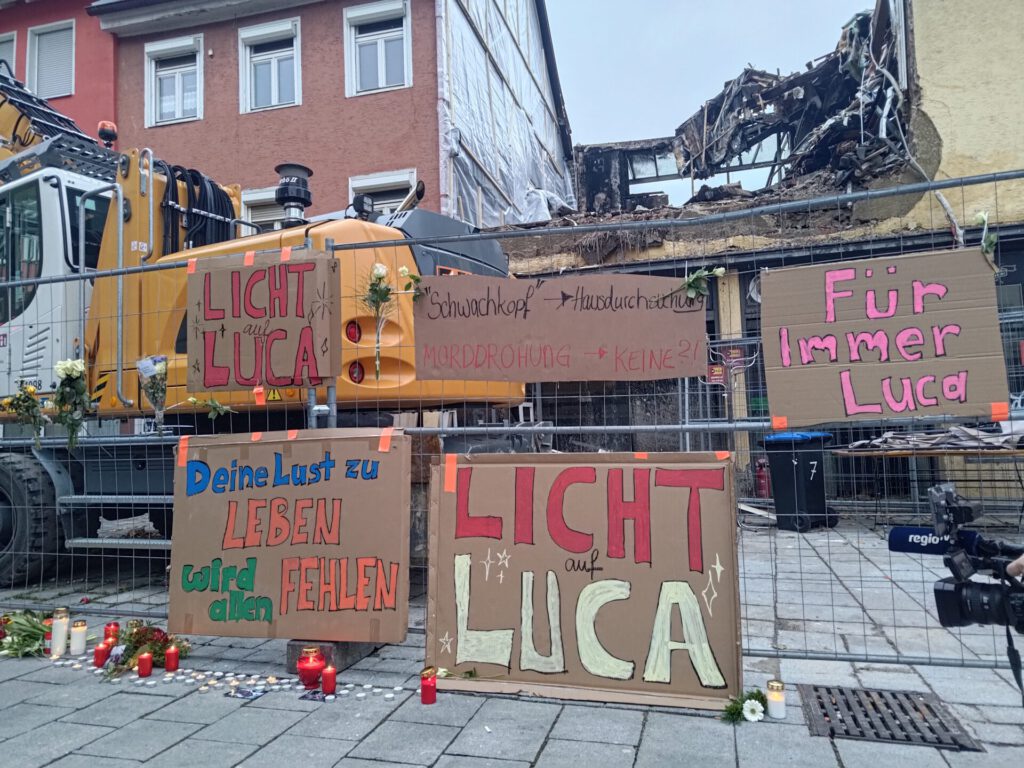 LICHT
auf
LUCA
"Schwachkopf" → Hausdurchsuchung
MORDDROHUNG → KEINE?!
Für
Immer
Luca
Deine Lust zu
LEBEN
wird
allen
FEHLEN
LICHT
auf
LUCA
7
regio